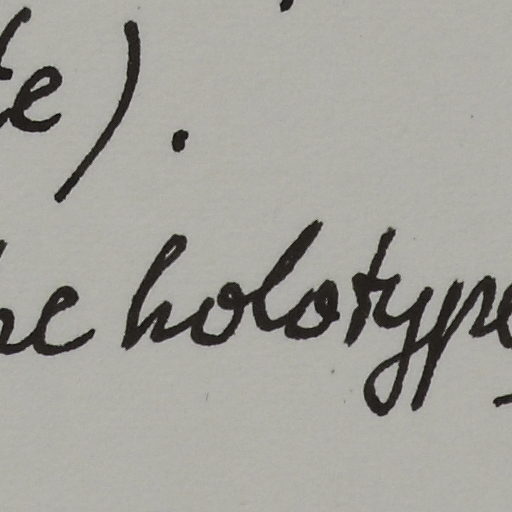 te).
he holotype